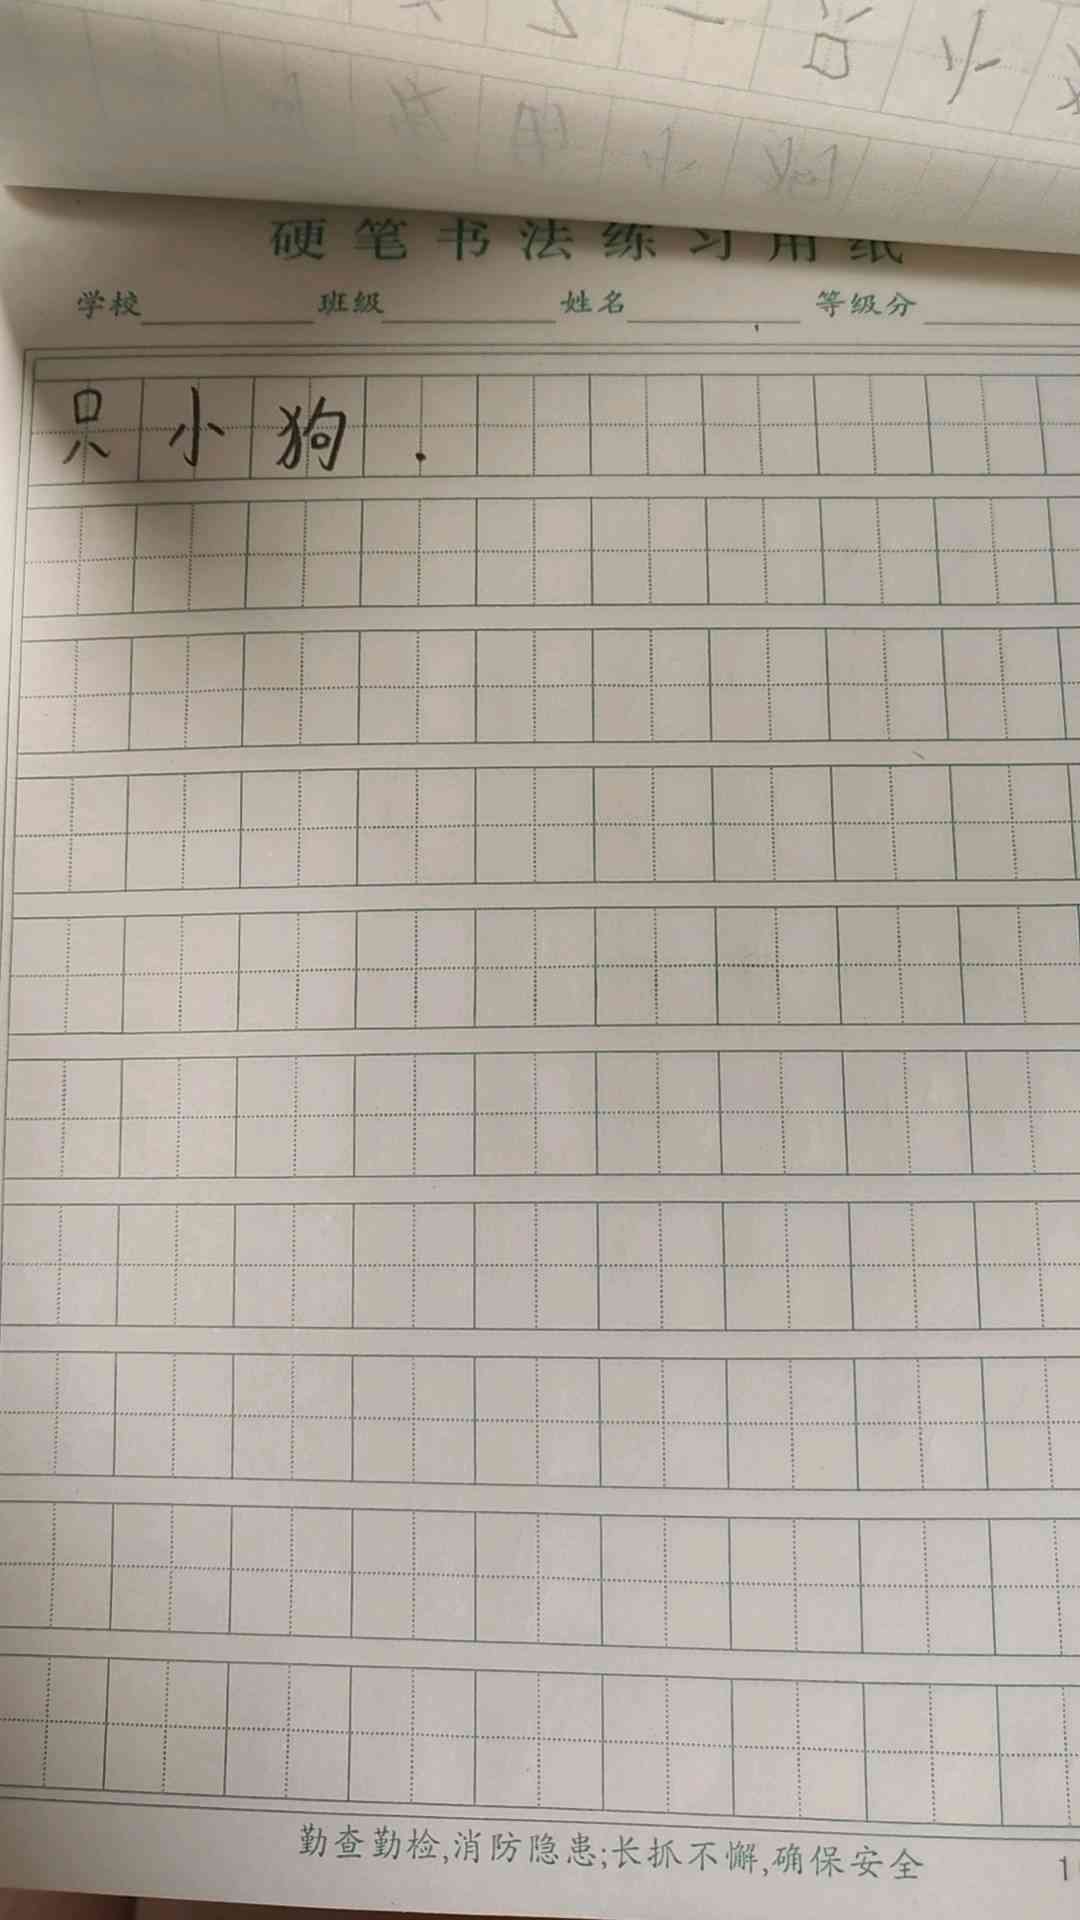 硬笔书法练习用纸
学校 班级 姓名 等级分
只小狗.
勤查勤检,消防隐患;长抓不懈,确保安全
1